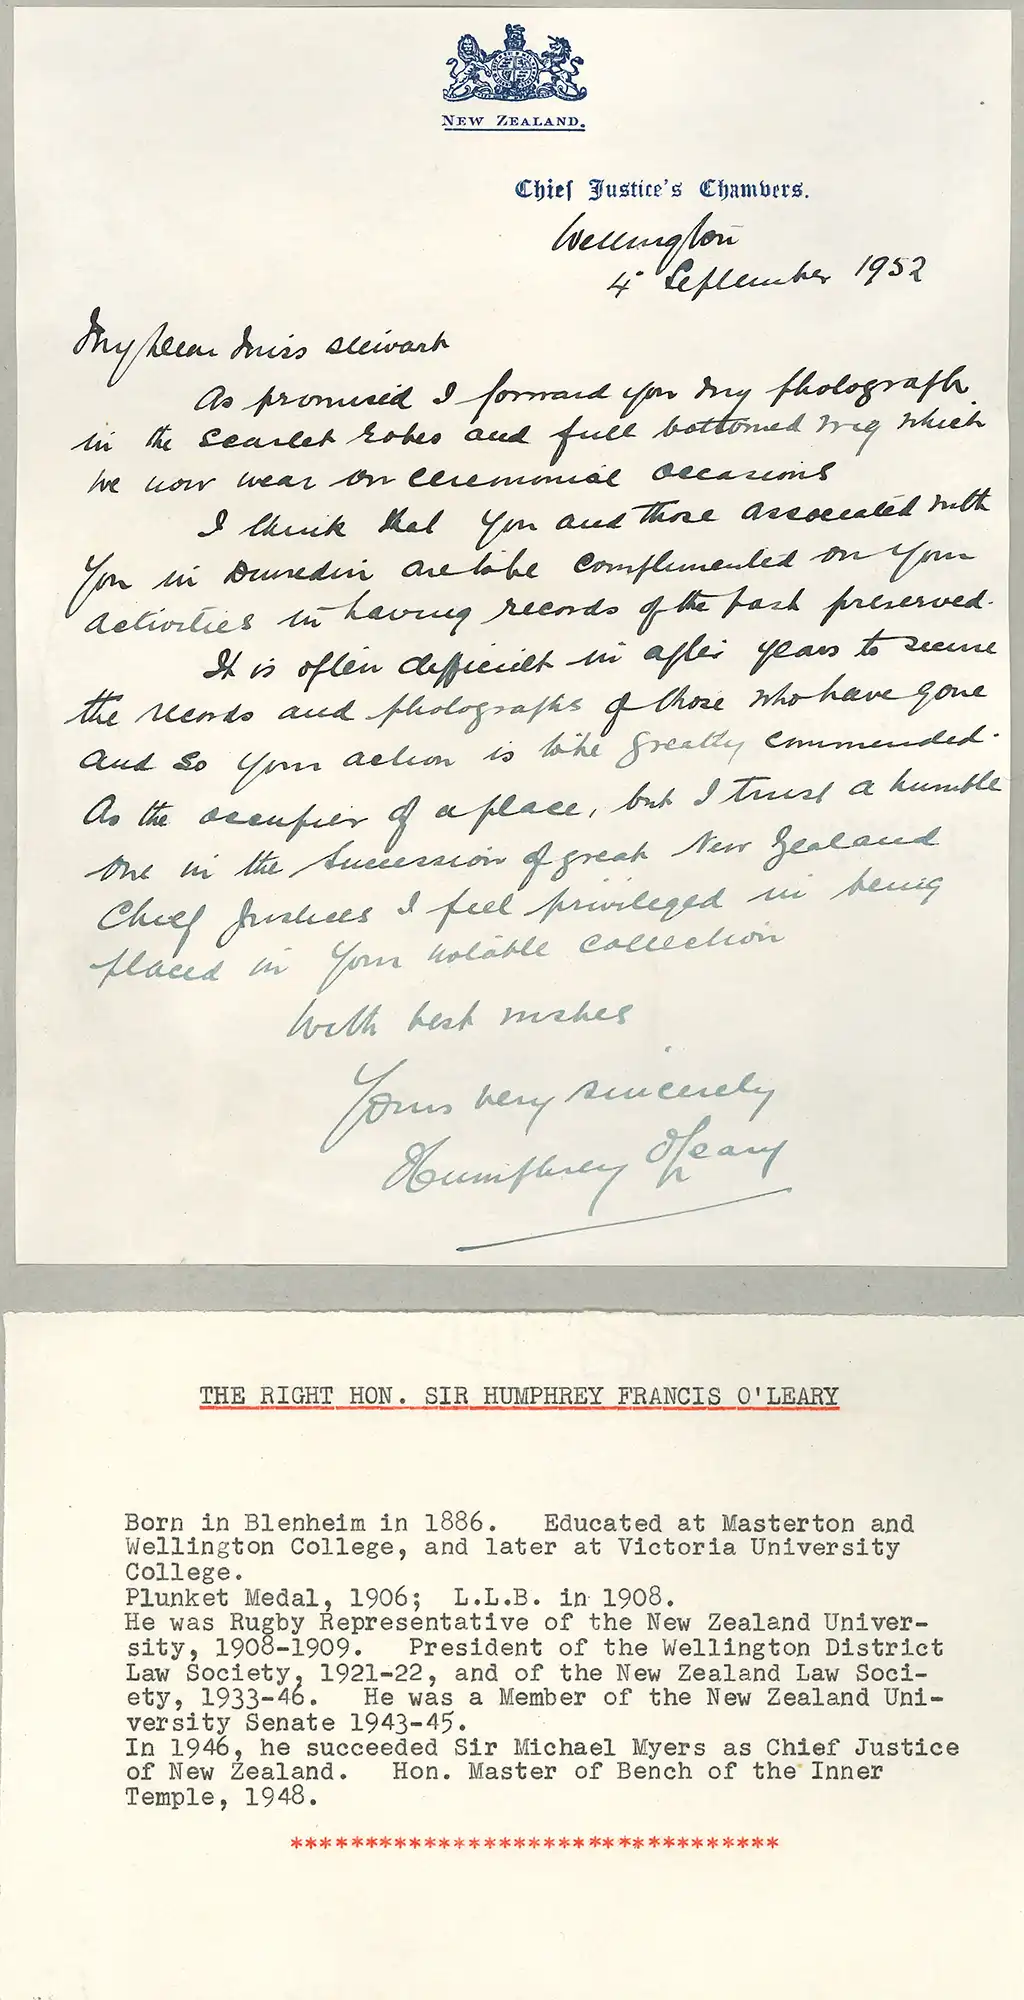 NEW ZEALAND.
Chief Justice's Chambers.
Wellington
4 September 1952
My Dear Miss Stewart
As promised I forward you my photograph
in the scarlet robes and full bottomed wig which
we now wear on ceremonial occasions
I think that you and those associated with
you in Dunedin are to be complimented on your
activities in having records of the past preserved.
It is often difficult in after years to secure
the records and photographs of those who have gone
and so your action is to be greatly commended.
As the occupier of a place, but I trust a humble
one in the succession of great New Zealand
Chief Justices I feel privileged in being
placed in your notable collection
With best wishes
Yours very sincerely
Humphrey O'Leary
THE RIGHT HON. SIR HUMPHREY FRANCIS O'LEARY
Born in Blenheim in 1886. Educated at Masterton and
Wellington College, and later at Victoria University
College.
Plunket Medal, 1906; L.L.B. in 1908.
He was Rugby Representative of the New Zealand Univer-
sity, 1908-1909. President of the Wellington District
Law Society, 1921-22, and of the New Zealand Law Soci-
ety, 1933-46. He was a Member of the New Zealand Uni-
versity Senate 1943-45.
In 1946, he succeeded Sir Michael Myers as Chief Justice
of New Zealand. Hon. Master of Bench of the Inner
Temple, 1948.
*********************************